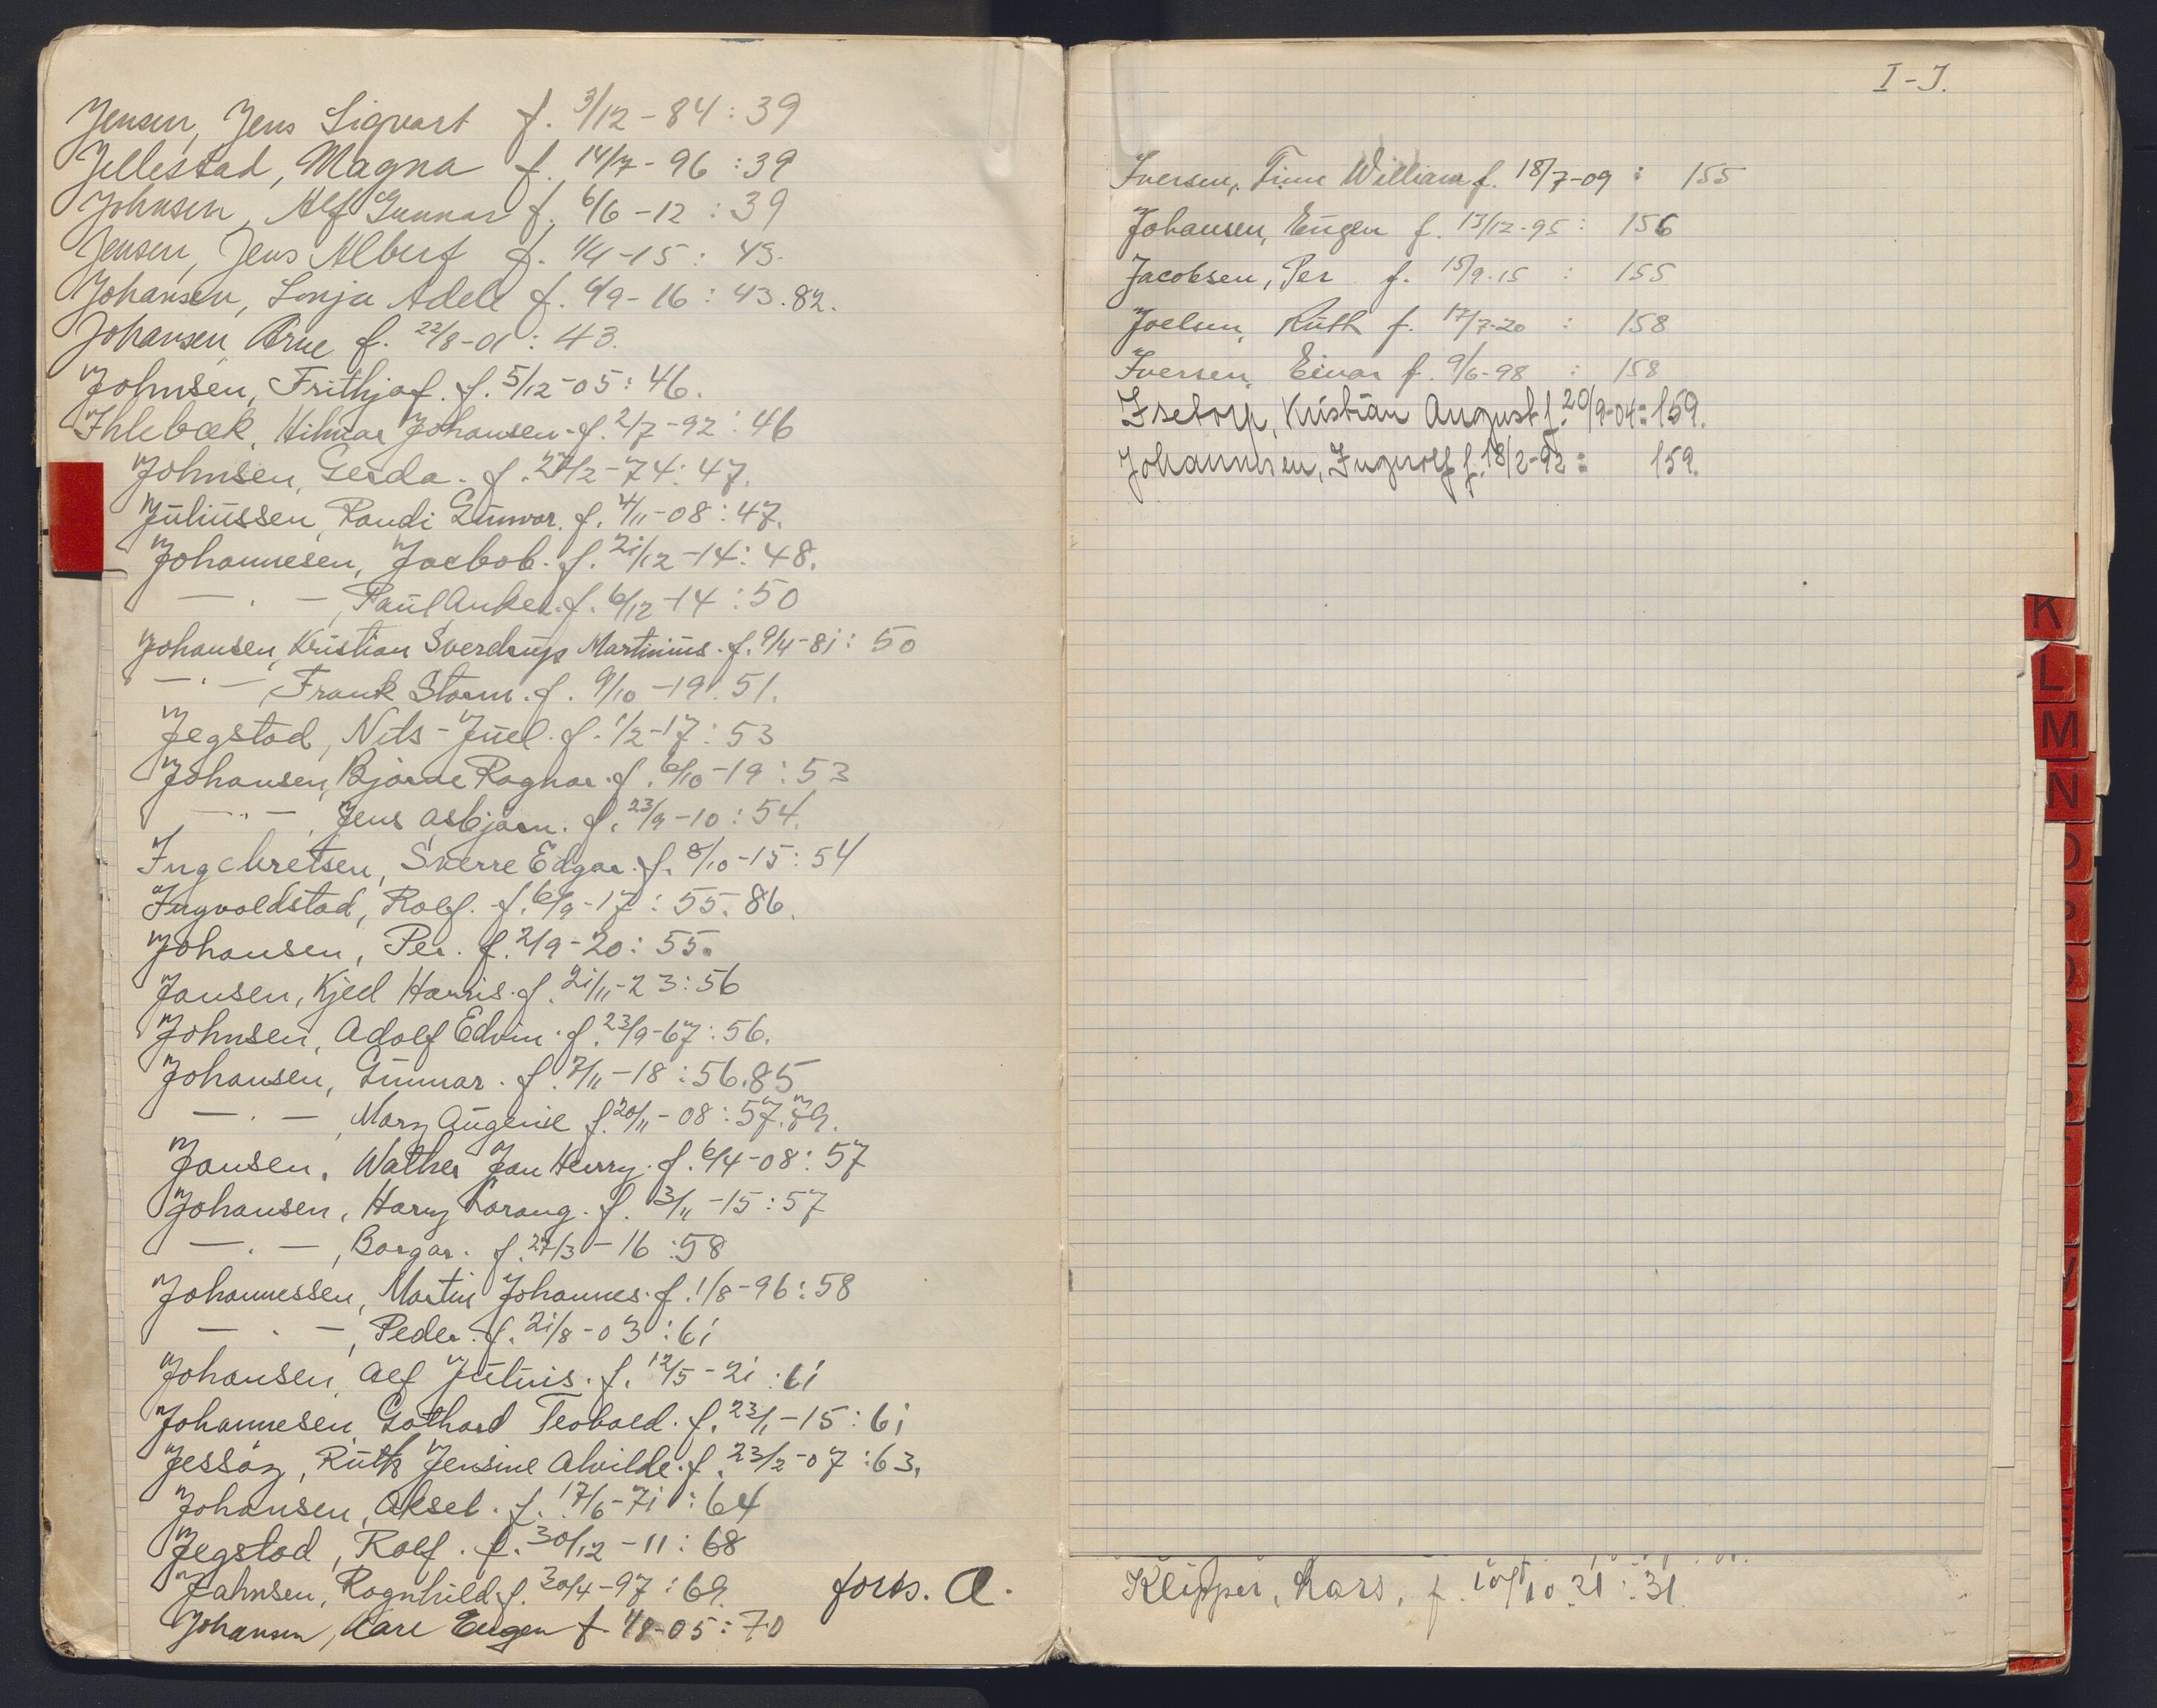 Jensen, Jens Sigvart f. 3/12-84 : 39
Jellestad, Magna f. 14/7-96 : 39
Johnsen, Alf Gunnar f. 6/6-12 : 39
Jensen, Jens Albert f. 1/4-15 : 43.
Johansen, Sonja Adele f. 6/9-16 : 43.82.
Johansen, Arne f. 22/8-01 : 43.
Johnsen, Frithjof. f. 5/12-05 : 46.
Ihlebæk, Hilmar Johansen. f. 2/7-92 : 46
Johnsen, Gerda. f. 27/2-74 : 47.
Juliussen, Randi Gunvor. f. 4/11-08 : 47.
Johannesen, Jacbob. f. 21/12-14 : 48.
— . — , Paul Anker. f. 6/12-14 : 50
Johansen, Kristian Sverdrup Martinius. f. 9/4-81 : 50
— . — , Frank Storm. f. 9/10-19 : 51.
Jegstad, Nils-Juel. f. 1/2-17 : 53
Johansen, Bjarne Ragnar. f. 6/10-19 : 53
— .. — , Jens Asbjørn. f. 23/9-10 : 54.
Ingebretsen, Sverre Edgar. f. 8/10-15 : 54
Ingvoldstad, Rolf. f. 6/9-17 : 55. 86.
Johansen, Per. f. 2/9-20 : 55.
Jansen, Kjell Harris. f. 21/11-23 : 56
Johnsen, Adolf Edvin. f. 23/9-67 : 56.
Johansen, Gunnar. f. 7/11-18 : 56.85
— . — , Mary Augenie f. 20/11-08 : 57.79.
Jansen, Walther Jan Henry. f. 6/4-08 : 57
Johansen, Harry f. 3/11-15 : 57
— . — , Borgar. f. 27/3-16 : 58
Johannessen, Martin Johannes. f. 1/8-96 : 58
— . — , Peder. f. 21/8-03 : 61
Johansen, Alf Julius. f. 12/5-21 : 61
Johannesen, Gothard Teobald. f. 23/1-15 : 61
Jessøy, Ruth Jensine Alvilde. f. 23/2-07 : 63.
Johansen, Aksel. f. 17/6-71 : 64
Jegstad, Rolf. f. 30/12-11 : 68
Jahnsen, Ragnhild. f. 30/4-97 : 69.
forts. A.
Johansen, Kare Eugen f. -05 : 70
I - J.
Iversen, Finn William f. 18/7-09 : 155
Johansen, Eugen f. 13/12-95 : 156
Jacobsen, Per f. 15/9-15 : 155
Joelsen, Ruth f. 17/7-20 : 158
Iversen, Einar f. 9/6-98 : 158
Isetorp, Kristian August f. 20/9-04 : 159.
Johannesen, Ingvolf f. 18/2-92 : 159.
Klipper, Lars, f. 10/10.21 : 31.
K
L
M
N